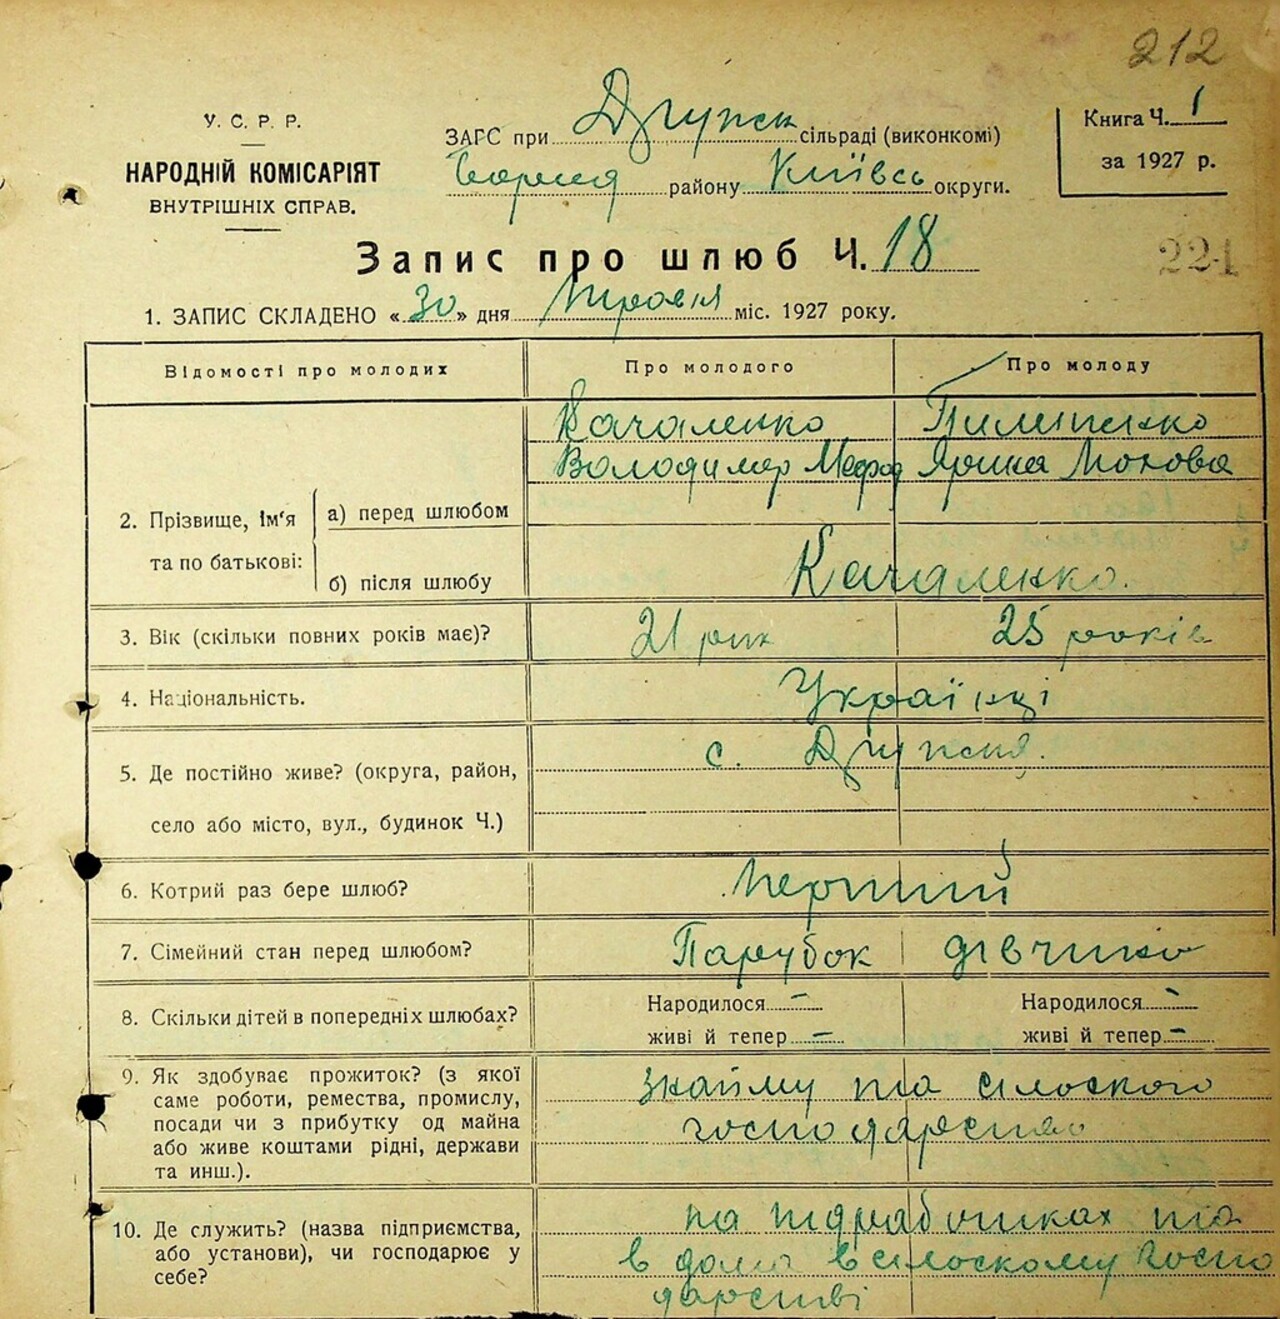 212
У. С. Р. Р.
НАРОДНІЙ КОМІСАРІЯТ
ВНУТРІШНІХ СПРАВ.
ЗАГС при сільраді (виконкомі)
району Київсь округи.
Книга Ч. 1
за 1927 р.
Запис про шлюб Ч. 18
224
1. ЗАПИС СКЛАДЕНО «30» дня Травня міс. 1927 року.
Відомості про молодих Про молодого Про молоду
Качаленко Пилипенко
Володимир Мефод Ярина
2. Прізвище, ім‘я та по батькові:
а) перед шлюбом
б) після шлюбу Качаленко.
3. Вік (скільки повних років має)? 21 рік 25 років
4. Національність. Українці
5. Де постійно живе? (округа, район, с.
село або місто, вул., будинок Ч.)
6. Котрий раз бере шлюб? Перший
7. Сімейний стан перед шлюбом? Парубок дівчина
8. Скільки дітей в попередніх шлюбах? Народилося – Народилося –
живі й тепер – живі й тепер –
9. Як здобуває прожиток? (з якої
саме роботи, ремества, промислу,
посади чи з прибутку од майна
або живе коштами рідні, держави
та инш.).
з найму та сільского
господарства
10. Де служить? (назва підприємства,
або установи), чи господарює у
себе?
на підрабітках та
в дома в сільскому госпо
дарстві